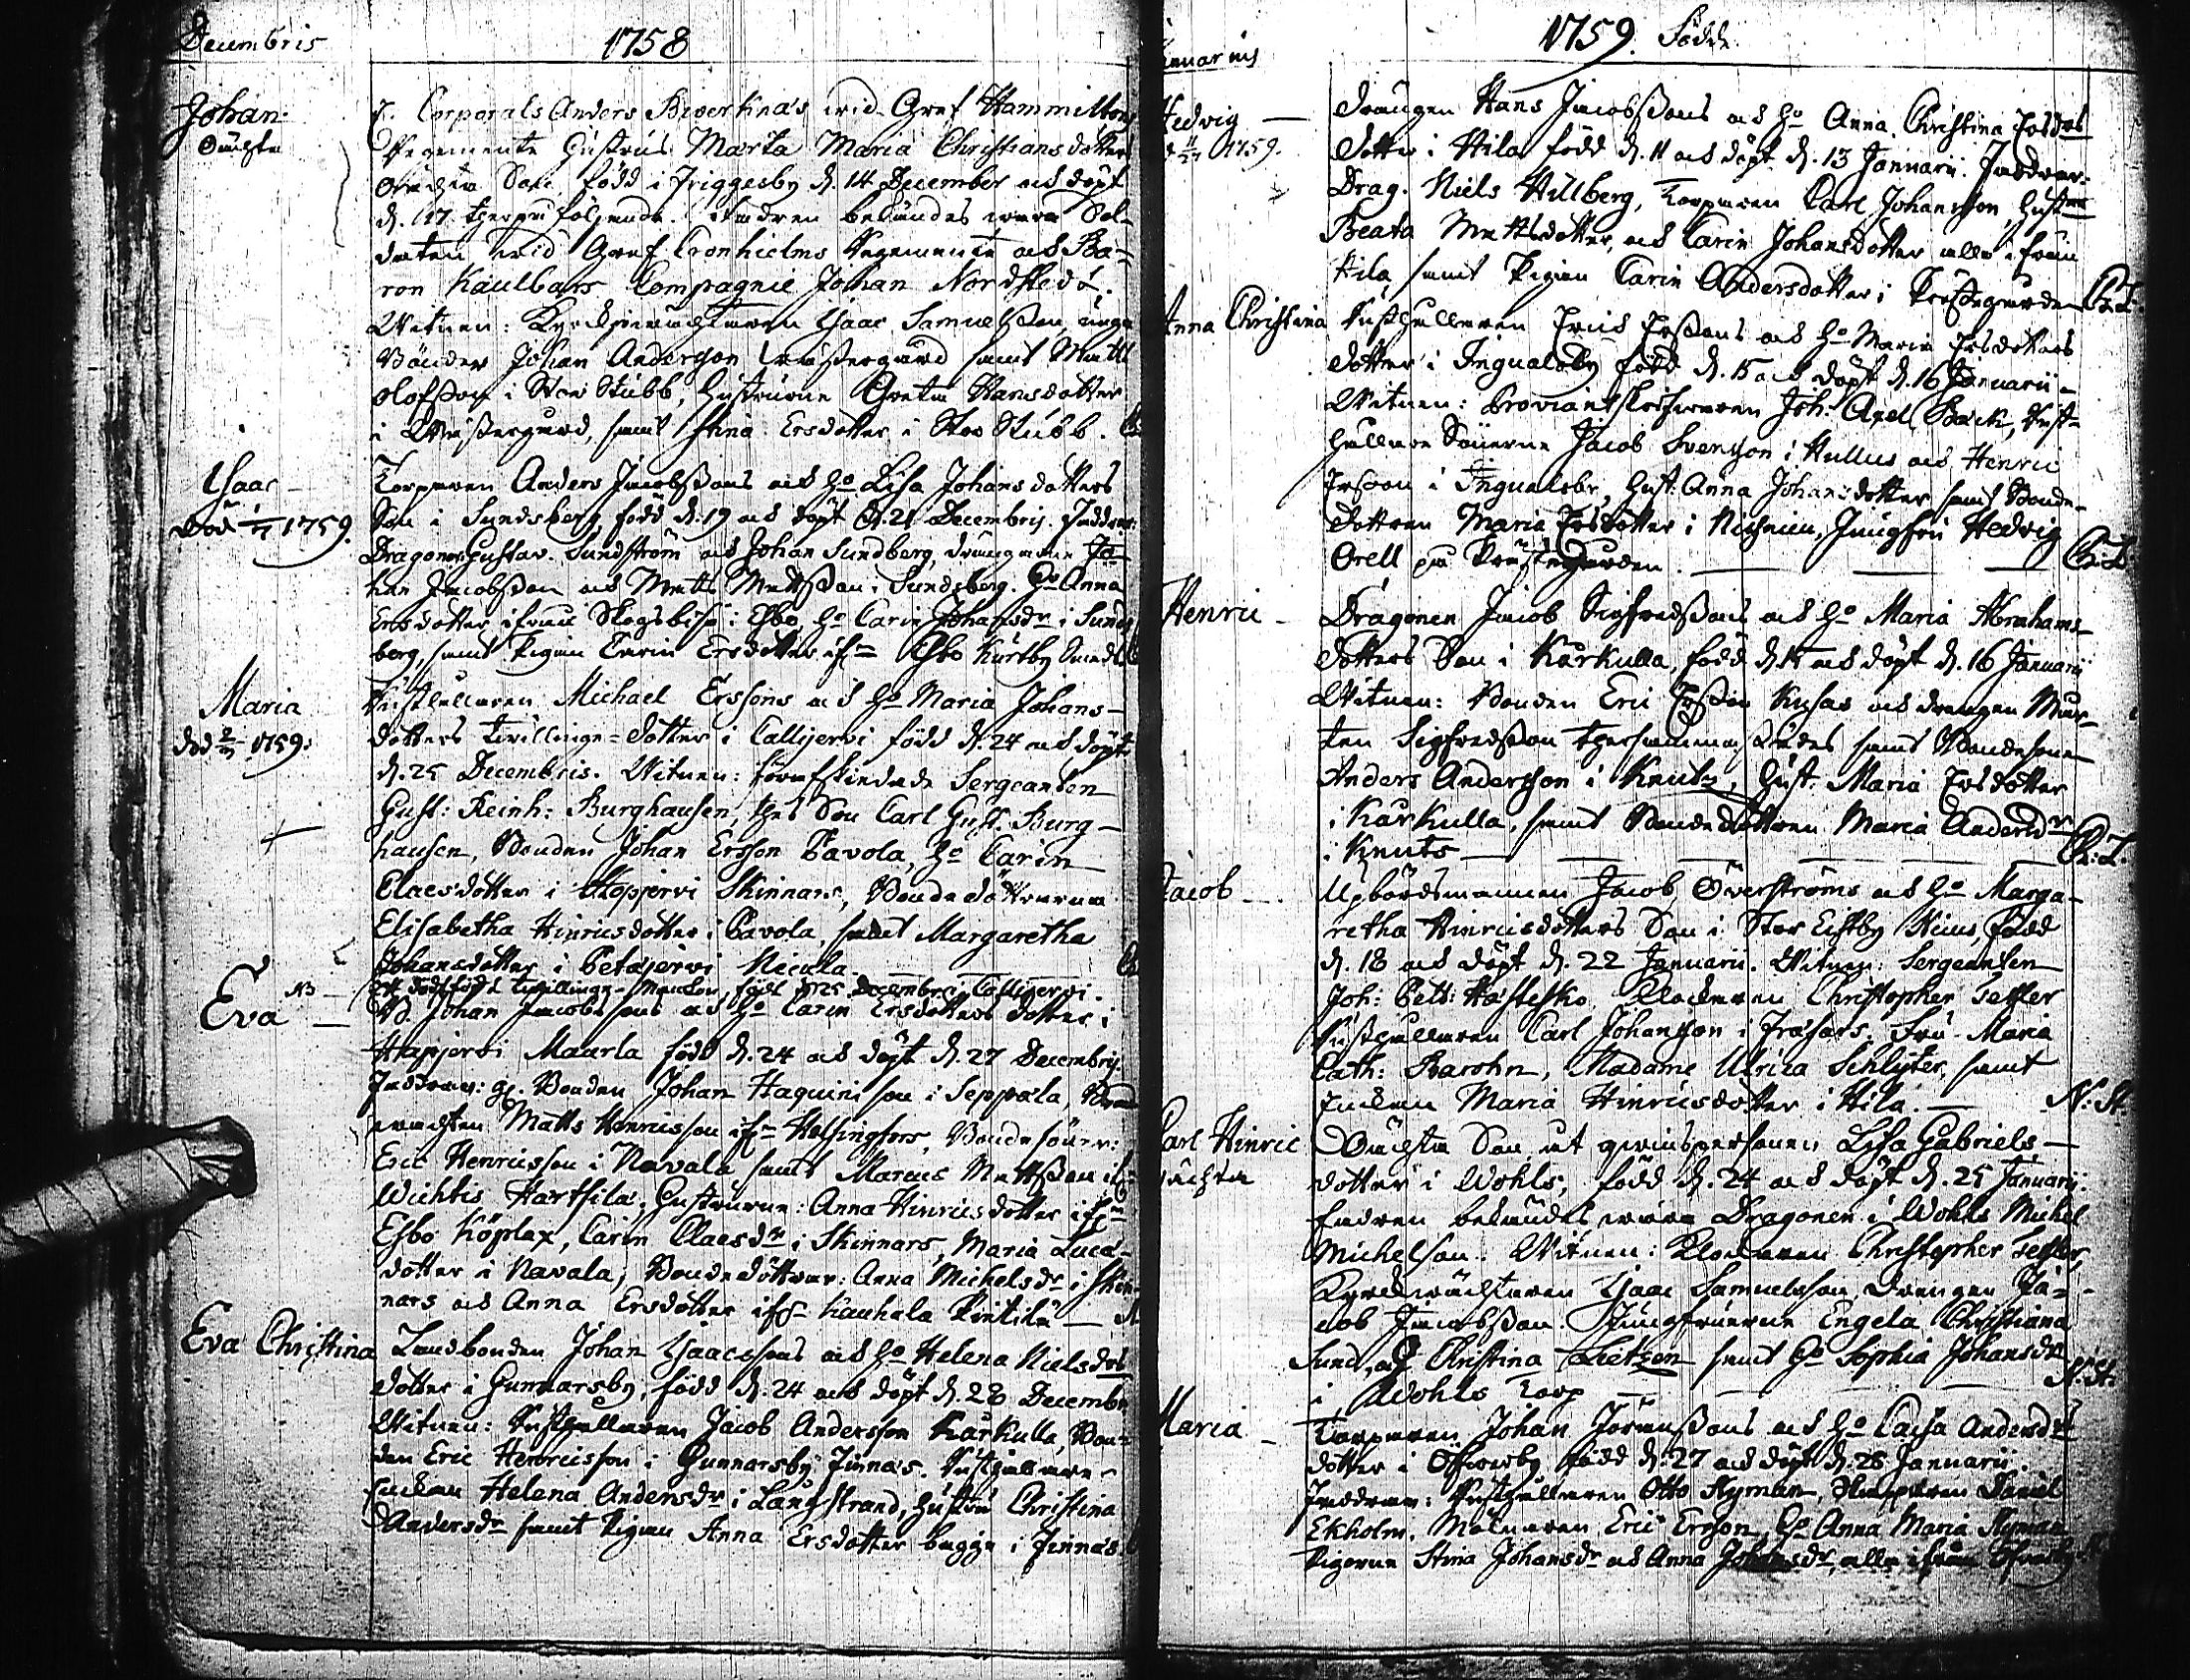 Decembris
1758
Johan
Oächta
f. Corporals Anders Biverkina's wid Gref Hammiltons
Regemente hustrus Marta Maria Christiansdotters
oächta Son, född i Friggesby d. 14 December och döpt
d. 17 therpå följande. Fadren bekändes wara Sol-
daten wid Gref Cronhielms Regemente och Ba-
ron Kaulbars Compagnie Johan Nordstedt.
Witnen: Kyrckiewachtaren Isaac Samuelsson, unga
Bönder Johan Andersson Wästergård samt Matts
Olofsson i Stor Stubb, hustrurne Greta Hansdotter
i Wästergård, samt Stina Ersdotter i Stor Stubb.
Isaac
död 1759.
Torparen Anders Jacobssons och ho Lisa Johansdotters
Son i Sundsberg, född d. 19 och döpt d. 21 Decembris. Faddrar:
Dragoner Gustav Sundström och Johan Sundberg, drängarne Jo-
han Jacobsson och Matts Mattsson i Sundsberg. Ho Anna
Ersdotter ifrån Skogsbisö i Esbo, ho Carin Johansdr i Sunds
berg, samt Pigan Carin Ersdotter ifrån Esbo Kurtby
Maria
död 1759.
Rusthållaren Michael Erssons och ho Maria Johans-
dotters twillinge-dotter i Callijervi född d. 24 och döpt
d. 25 Decembris. Witnen: förafskiedade Sergeanten
Gust: Reinh: Burghausen, thes Son Carl Gust. Burg-
hausen, Bonden Johan Ersson Pavola, ho Carin
Claesdotter i Kopjervi Skinnars, Bondedöttrarna
Elisabetha Hinricsdotter i Pavola, samt Margaretha
Johansdotter i Petäjervi Nicula
NB
Ett dödfödt twillinge- född Decembris Callijervi.
Eva
B. Johan Jacobssons och ho Carin Ersdotters dotter i
Hapjervi Maarla född d. 24 och döpt d. 27 Decembris.
Faddrar: gl. Bonden Johan Haquinsson i Seppala,
wachten Matts Henricsson ifrån Helsingfors, Bondesöner:
Eric Henricsson i Navala samt Marcus Mattsson
Wichtis Härtsilä. Hustrurne: Anna Hinricsdotter ifrån
Esbo Köplax, Carin Claesdr i Skinnars, Maria Lucæ-
dotter i Navala; Bondedöttrar: Anna Michelsdr i Skin-
nars och Anna Ersdotter ifrån Kauhala Pintilä
Eva Christina
Landbonden Johan Isaacssons och ho Helena Nielsdrs
dotter i Gunnarsby, född d. 24 och döpt d. 28 Decembr
Witnen: Rusthållaren Jacob Andersson Kårkulla, Bon-
den Eric Henricsson i Gunnarsby Finnäs. Rusthållare
Enckan Helena Andersdr i Långstrand, hustru Christina
Andersdr samt Pigan Anna Ersdotter bägge i Finnäs.
1759. Födde
Januarius
Hedvig
1759.
Drängen Hans Jacobssons och ho Anna Christina Ersdrs
dotter i Hila född d. 11 och döpt d. 13 Januarii. Faddrar:
Drag. Niels Hillberg, Torparen Carl Johansson, hustrur
Beata Mattsdotter, och Carin Johansdotter alle ifrån
Hila, samt Pigan Carin Andersdotter i Prestegården
Anna Christina
Rusthållaren Eric Erssons och ho Maria Ersdotters
dotter i Ingualsby född d. 15 och döpt d. 16 Januarii
Witnen: Proviantskrifvaren Joh: Axel Back, Rust-
hållare Sönerne Jacob Svensson i Hullus och Henric
Ersson i Ingualsby, hust: Anna Johansdotter samt Bonde-
dottren Maria Ersdotter i Nissnu, Jungfru Hedvig
Orell på Prästegården
Henric
Dragonen Jacob Sigfredssons och ho Maria Abrahams-
dotters Son i Kårkulla, född d. 15 och döpt d. 16 Januarii
Witnen: Bonden Eric Ersson Kusas och drengen Mår-
ten Sigfredsson thersammastädes samt Bondesonen
Anders Andersson i Knuts, hust: Maria Ersdotter
i Kårkulla, samt Bondedottren Maria Andersdr
i Knuts
Jacob
Upbördsmannen Jacob Öwerströms och ho Marga-
retha Hinricsdotters Son i Stor Eistby Nims, född
d. 18 och döpt d. 22 Januarii. Witnen: Sergeanten
Joh: Pett: Hästesko, Klockaren Christopher Tessler
Rusthållaren Carl Johansson i Fräsars, Fru Maria
Cath: Barohn, Madame Ulrica Schlyter, samt
Enckan Maria Hinricsdotter i Hila.
N: St.
Carl Hinric
oächta
Oächta Son, ut qvinspersonen Lisa Gabriels-
dotter i Wohls, född d. 24 och döpt d. 25 Januarii.
Fadren bekändes wara Dragonen i Wohls Michel
Michelson. Witnen: Klockaren Christopher Tessler,
Kyrckwächtaren Isaac Samuelsson, Drengen Ja-
cob Jacobsson. Jungfruerne Engela Christiana
Sund, och Christina Lietzen samt ho Sophia Johansdr
i Wohls torp
N. St.
Maria
Torparen Johan Göranssons och ho Caisa Andersdrs
dotter i Öfwerby född d. 27 och döpt d. 28 Januarii.
Faddrar: Rusthållaren Otto Nyman, Klapparen Daniel
Ekholm. Målaren Eric Ersson, ho Anna Maria Nyman
Pigorne Stina Johansdr och Anna Johansdr, alla ifrån Öfwerby